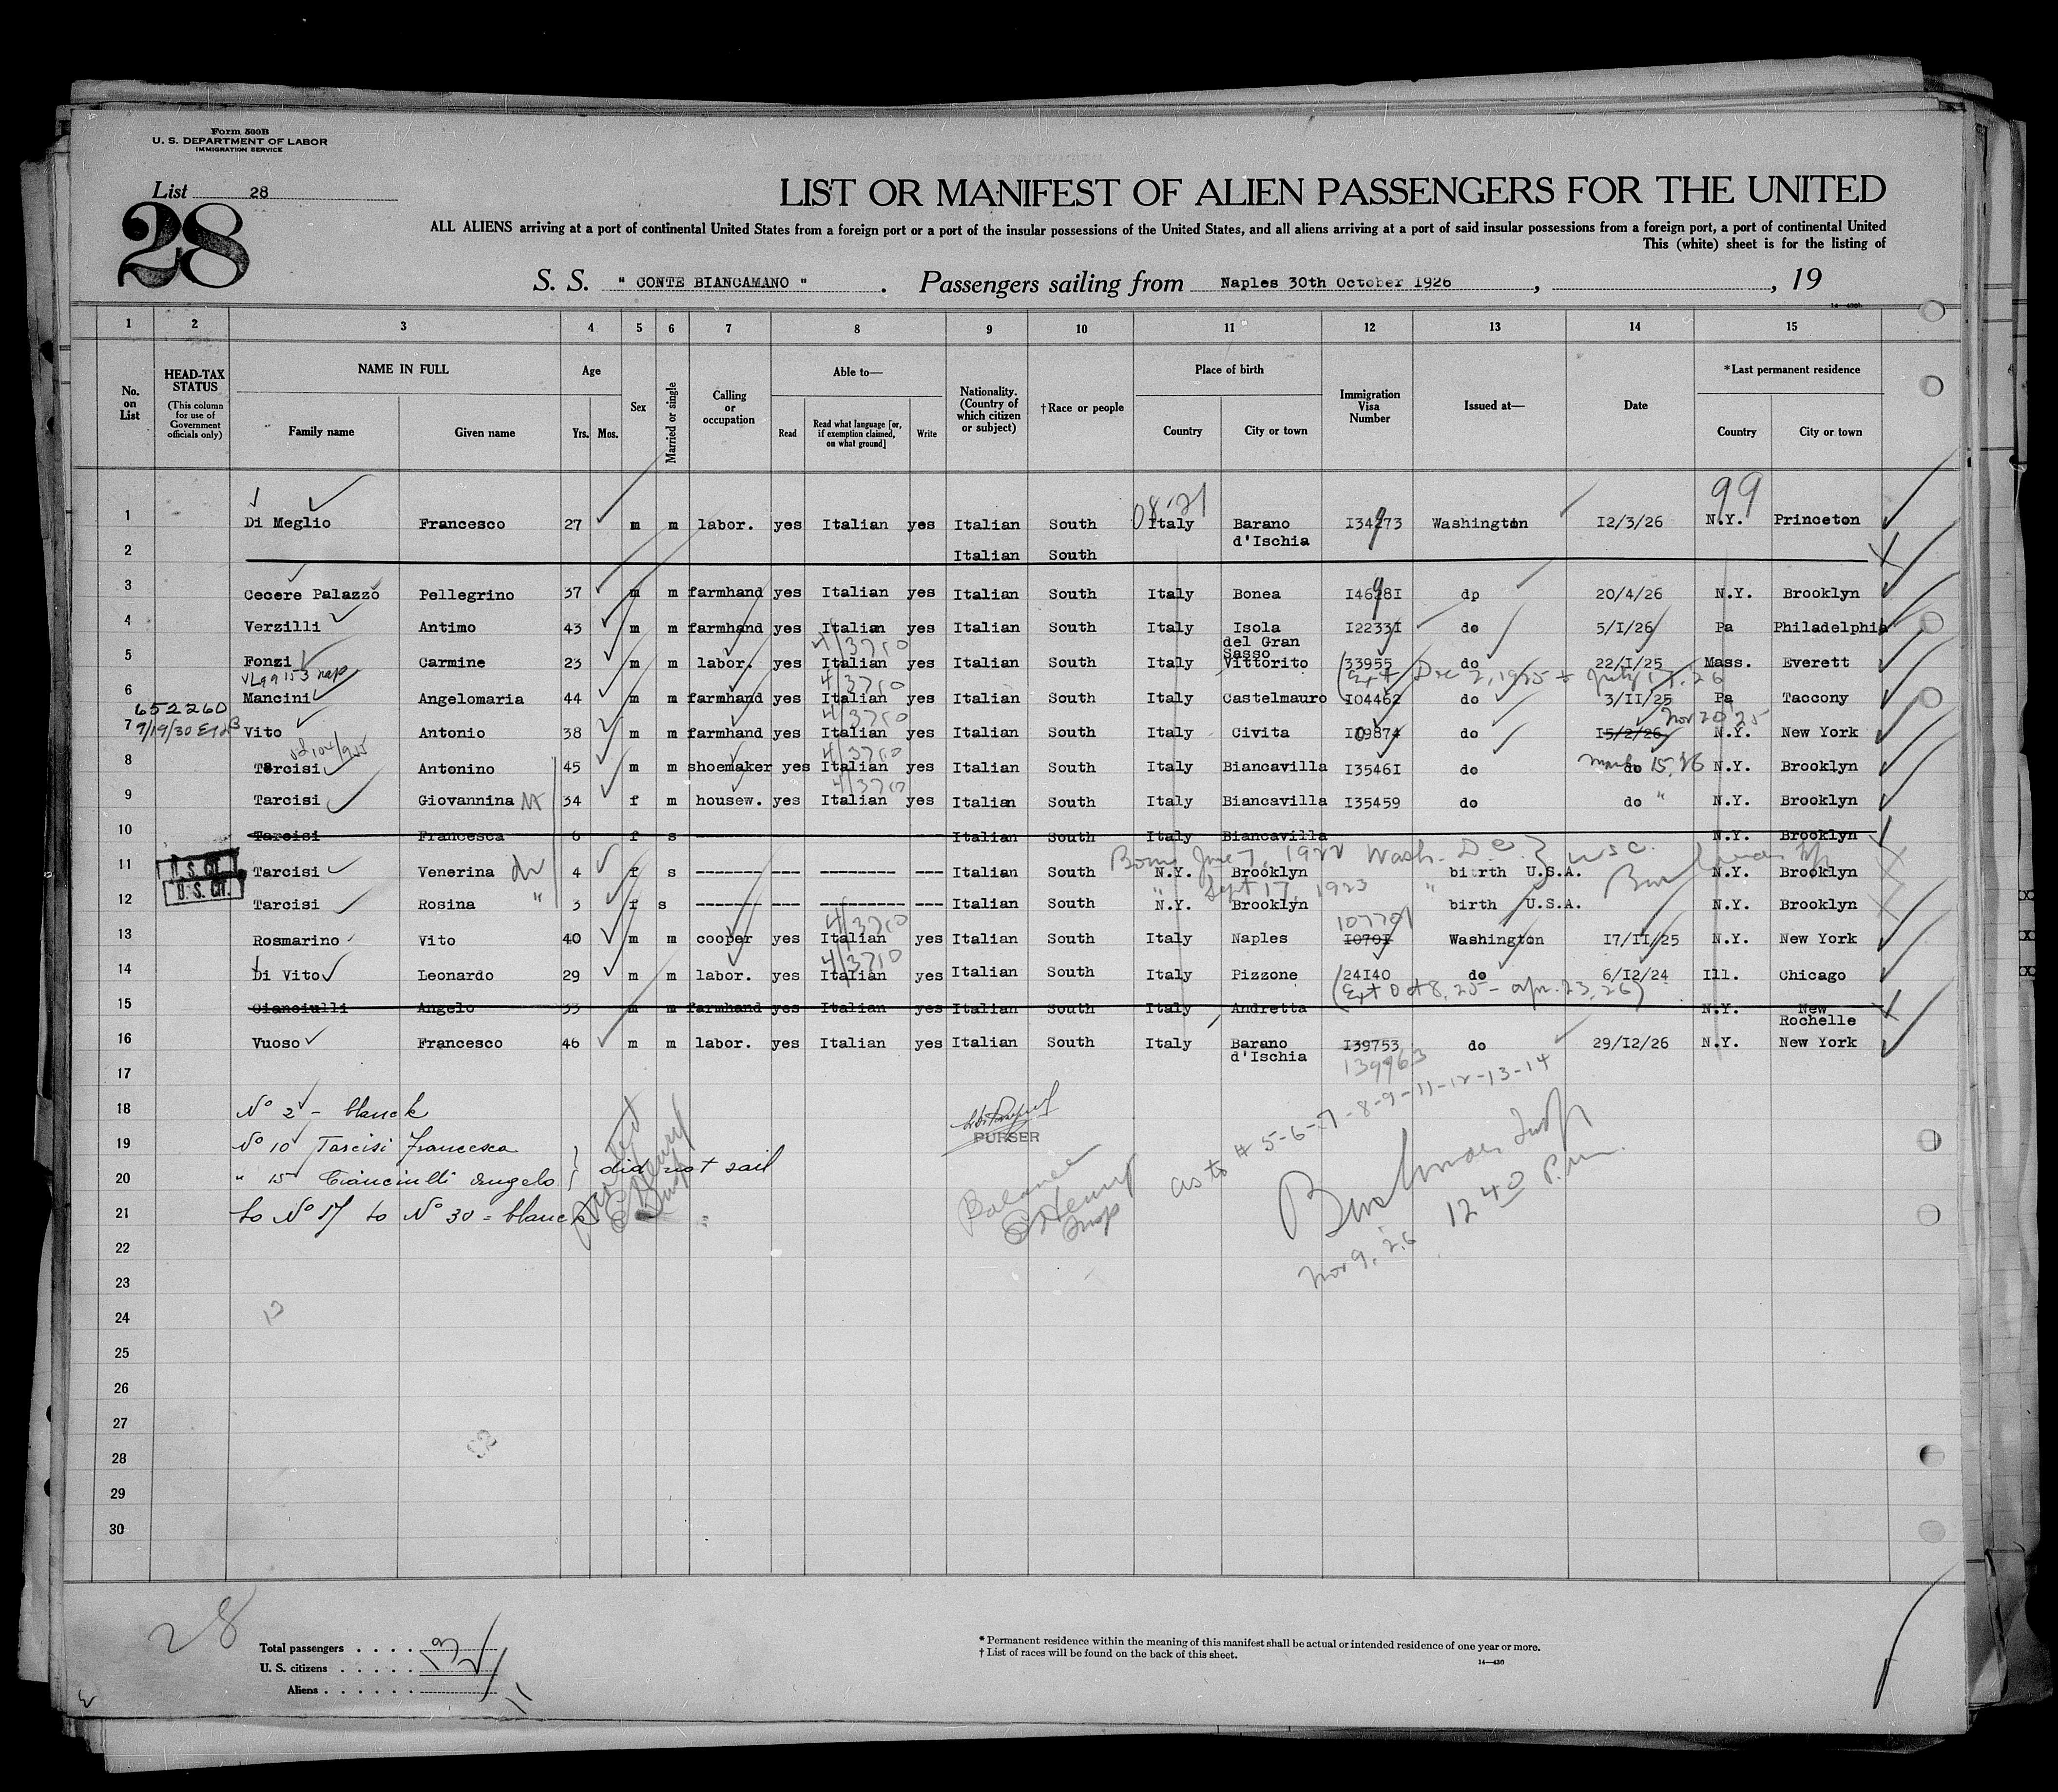 Form 500B
U. S. DEPARTMENT OF LABOR
IMMIGRATION SERVICE
List 28
28
LIST OR MANIFEST OF ALIEN PASSENGERS FOR THE UNITED
ALL ALIENS arriving at a port of continental United States from a foreign port or a port of the insular possessions of the United States, and all aliens arriving at a port of said insular possessions from a foreign port, a port of continental United
This (white) sheet is for the listing of
S. S. " CONTE BIANCAMANO " . Passengers sailing from Naples 30th October 1926 , , 19
1 2 3 4 5 6 7 8 9 10 11 12 13 14 15
No. on List
HEAD-TAX STATUS (This column for use of Government officials only)
NAME IN FULL
Family name Given name
Age
Yrs. Mos.
Sex
Married or single
Calling or occupation
Able to—
Read Read what language [or, if exemption claimed, on what ground] Write
Nationality. (Country of which citizen or subject)
†Race or people
Place of birth
Country City or town
Immigration Visa Number
Issued at—
Date
*Last permanent residence
Country City or town
99
1 Di Meglio Francesco 27 m m labor. yes Italian yes Italian South Italy Barano d'Ischia I34273 Washington I2/3/26 N.Y. Princeton
2 Italian South
3 Cecere Palazzo Pellegrino 37 m m farmhand yes Italian yes Italian South Italy Bonea I4628I do 20/4/26 N.Y. Brooklyn
4 Verzilli Antimo 43 m m farmhand yes Italian yes Italian South Italy Isola del Gran Sasso I2233I do 5/I/26 Pa Philadelphia
4/3710
5 Fonzi Carmine 23 m m labor. yes Italian yes Italian South Italy Vittorito 33955 do 22/I/25 Mass. Everett
(Ext Dec 2, 1925 + July 17, 26
4/3710
6 Mancini Angelomaria 44 m m farmhand yes Italian yes Italian South Italy Castelmauro I04462 do 3/II/25 Pa Taccony
652260
9/19/30
4/3710
Nov 20 '25
7 Vito Antonio 38 m m farmhand yes Italian yes Italian South Italy Civita I09874 do I5/2/26 N.Y. New York
4/3710
8 Tarcisi Antonino 45 m m shoemaker yes Italian yes Italian South Italy Biancavilla I3546I do do March 15, 26 N.Y. Brooklyn
4/3710
9 Tarcisi Giovannina 34 f m housew. yes Italian yes Italian South Italy Biancavilla I35459 do do " N.Y. Brooklyn
10 Tarcisi Francesca 6 f s Italian South Italy Biancavilla N.Y. Brooklyn
Born June 7, 1922 Wash. D.C. } U.S.C.
U. S. CIT.
11 Tarcisi Venerina 4 f s Italian South N.Y. Brooklyn birth U.S.A. N.Y. Brooklyn
U. S. CIT.
" Sept 17, 1923 "
12 Tarcisi Rosina " 3 f s Italian South N.Y. Brooklyn birth U.S.A. N.Y. Brooklyn
4/3710 107701
13 Rosmarino Vito 40 m m cooper yes Italian yes Italian South Italy Naples I070I Washington I7/II/25 N.Y. New York
4/3710
14 Di Vito Leonardo 29 m m labor. yes Italian yes Italian South Italy Pizzone 24I40 do 6/I2/24 Ill. Chicago
(Ext Oct 8, 25 - apr. 23, 26)
15 Cianciulli Angelo 33 m m farmhand yes Italian yes Italian South Italy Andretta N.Y. New Rochelle
16 Vuoso Francesco 46 m m labor. yes Italian yes Italian South Italy Barano d'Ischia I39753 do 29/I2/26 N.Y. New York
139963
17
18 No 2 - blanck
19 No 10 Tarcisi Francesca
PURSER
as to # 5-6-7-8-9-11-12-13-14
20 " 15 Cianciulli Angelo } did not sail
21 to No 17 to No 30 = blanck
Balance
Insp
Nov 9, 26 12 40 P.m.
22
23
24
25
26
27
28
29
30
28
Total passengers . . . .
U. S. citizens . . . . .
Aliens . . . . . .
11
* Permanent residence within the meaning of this manifest shall be actual or intended residence of one year or more.
† List of races will be found on the back of this sheet.
14—430